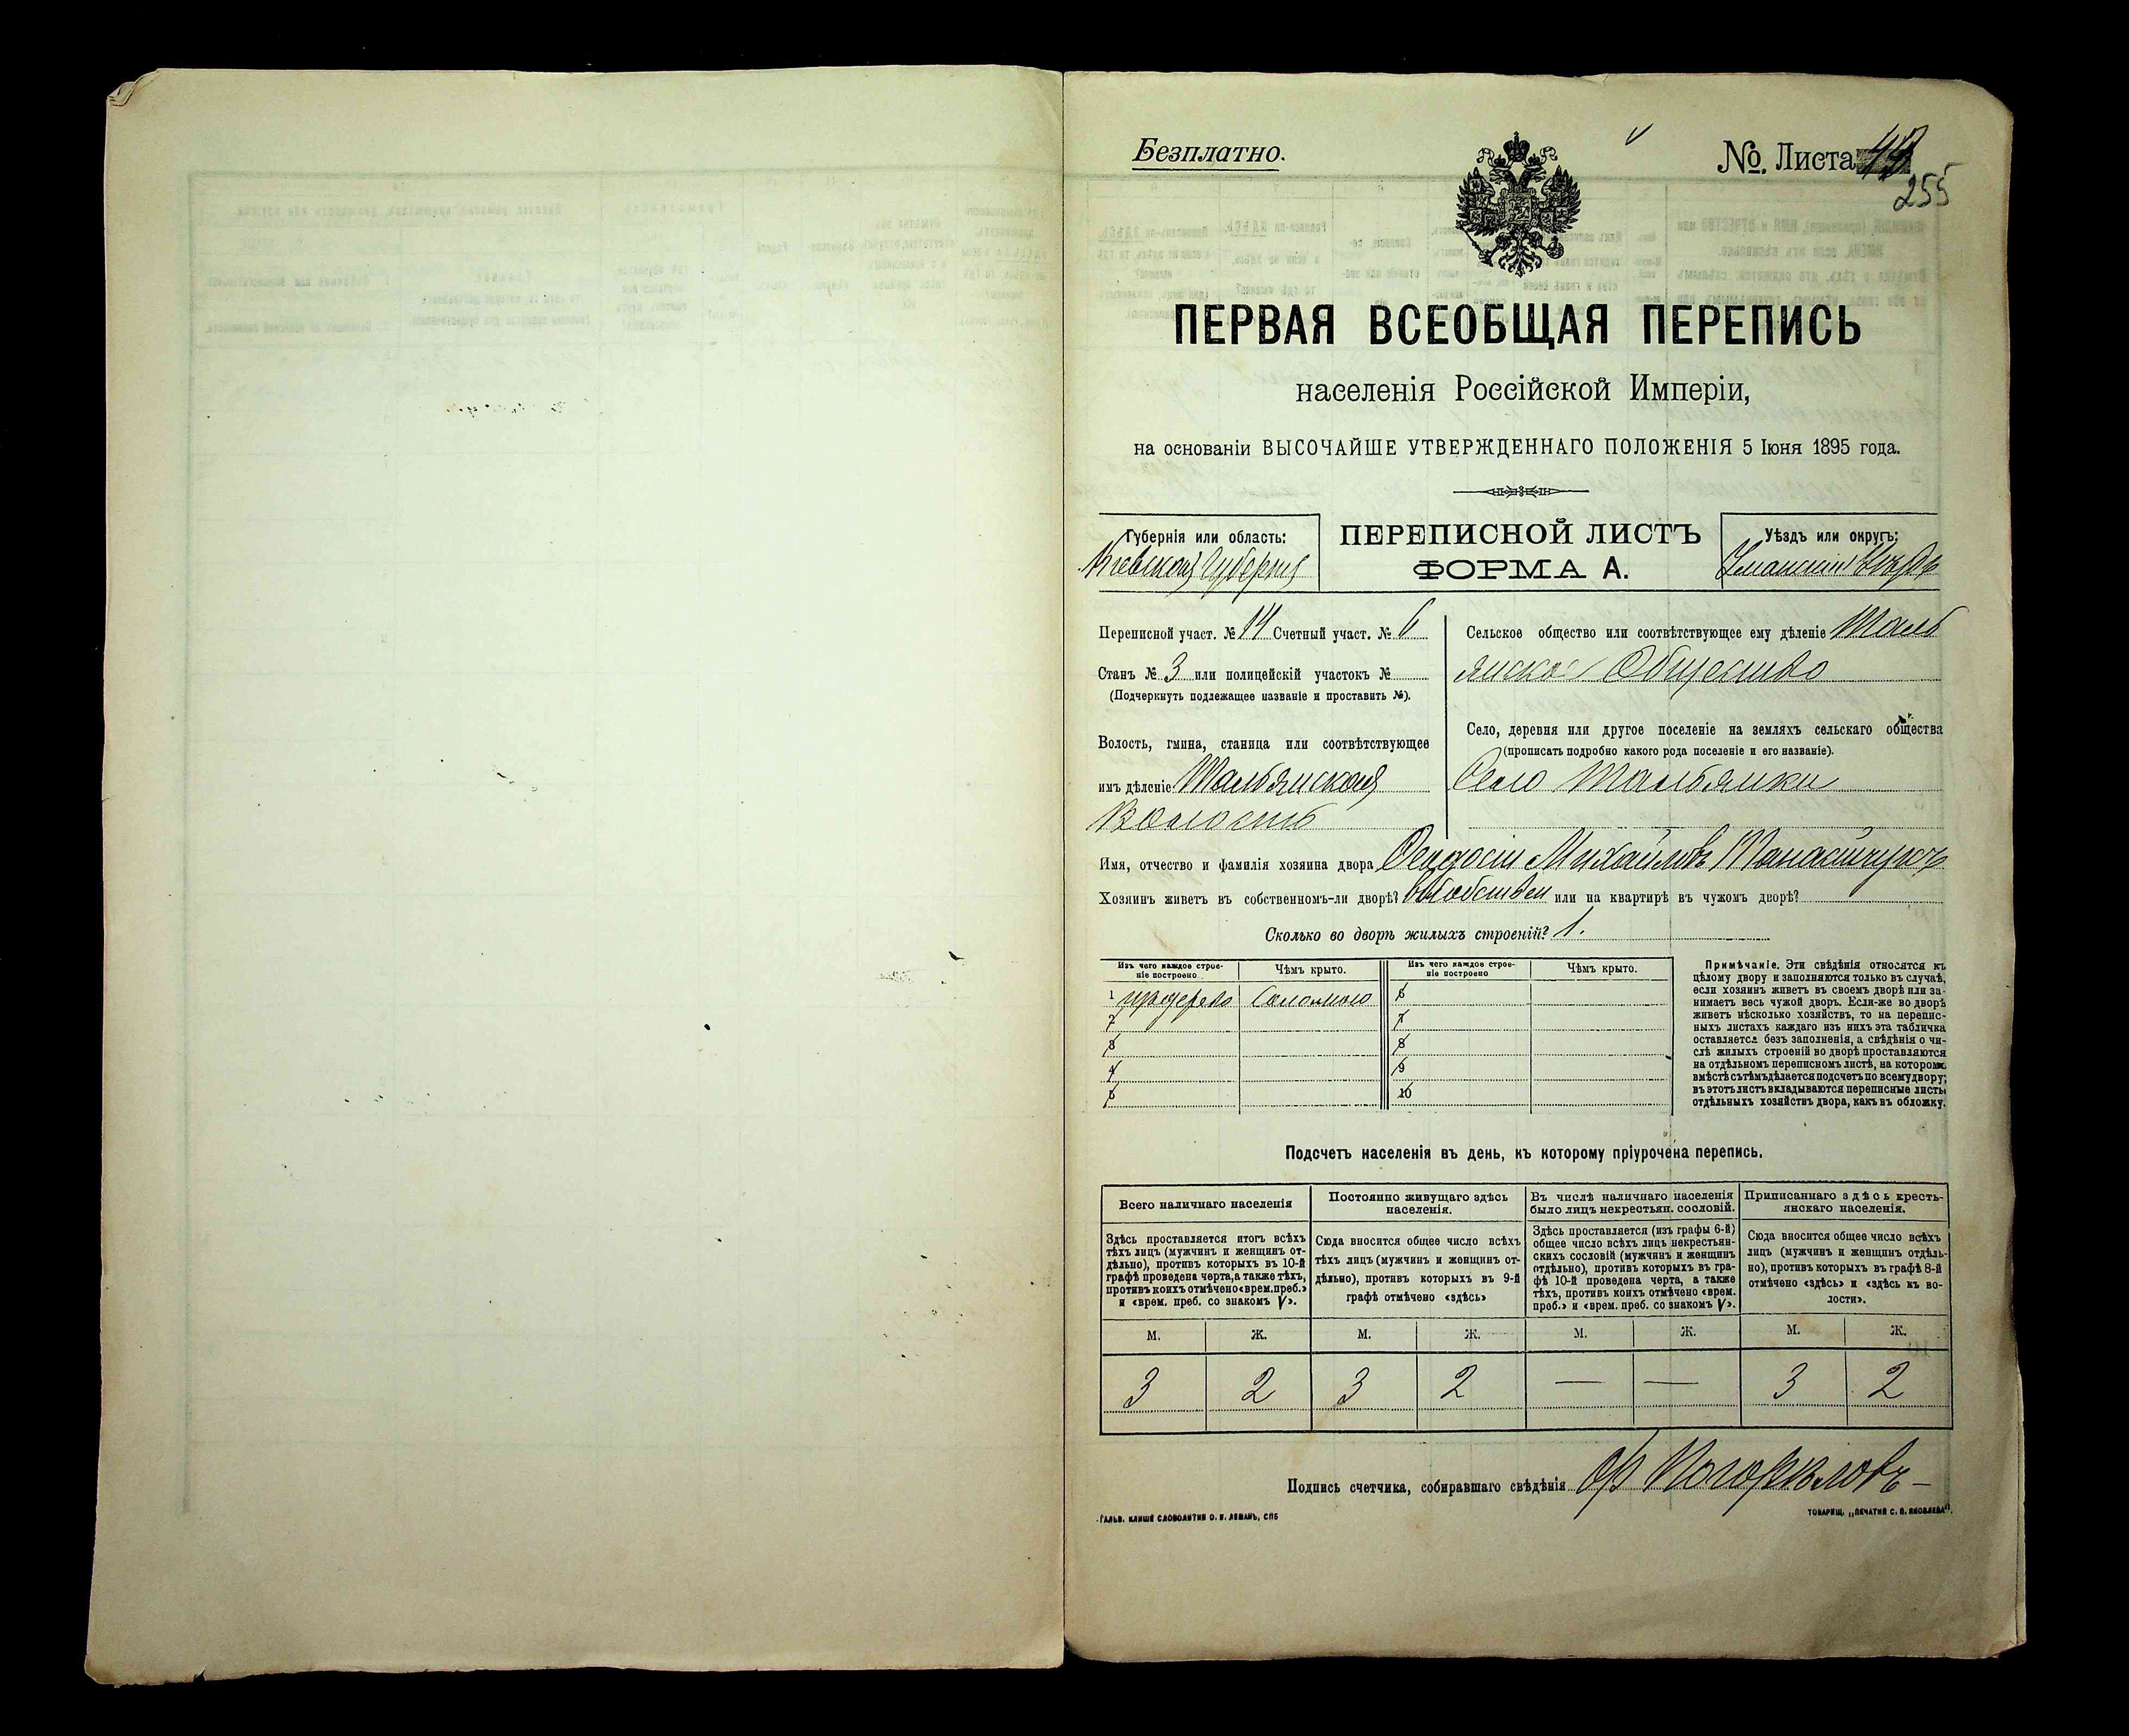 Безплатно.
№ Листа
255
ПЕРВАЯ ВСЕОБЩАЯ ПЕРЕПИСЬ
населенія Россійской Имперіи,
на основаніи ВЫСОЧАЙШЕ УТВЕРЖДЕННАГО ПОЛОЖЕНІЯ 5 Іюня 1895 года.
Губернія или область:
Кіевская Губернія
ПЕРЕПИСНОЙ ЛИСТЪ
ФОРМА А.
Уѣздъ или округъ:
Уманскій Уѣздъ
Переписной участ. № 14 Счетный участ. № 6
Станъ № 3 или полицейскій участокъ №
(Подчеркнуть подлежащее названіе и проставить №).
Волость, гмина, станица или соотвѣтствующее
имъ дѣленіе Тальянская
Волость
Сельское общество или соотвѣтствующее ему дѣленіе Таль
янское Общество
Село, деревня или другое поселеніе на земляхъ сельскаго общества
(прописать подробно какого рода поселеніе и его названіе).
Село Тальянки
Имя, отчество и фамилія хозяина двора Феодосій Михайловъ Танасійчукъ
Хозяинъ живетъ въ собственномъ-ли дворѣ? въ собствен или на квартирѣ въ чужомъ дворѣ?
Сколько во дворѣ жилыхъ строеній? 1.
Изъ чего каждое строе-
ніе построено
Чѣмъ крыто.
Изъ чего каждое строе-
ніе построено
Чѣмъ крыто.
1 изъ дерева Соломою
6
2
7
3
8
4
9
5
10
Примѣчаніе. Эти свѣдѣнія относятся къ
цѣлому двору и заполняются только въ случаѣ,
если хозяинъ живетъ въ своемъ дворѣ или за-
нимаетъ весь чужой дворъ. Если-же во дворѣ
живетъ нѣсколько хозяйствъ, то на перепис-
ныхъ листахъ каждаго изъ нихъ эта табличка
оставляется безъ заполненія, а свѣдѣнія о чи-
слѣ жилыхъ строеній во дворѣ проставляются
на отдѣльномъ переписномъ листѣ, на которомъ
вмѣстѣ съ тѣмъ дѣлается подсчетъ по всему двору;
въ этотъ листъ вкладываются переписные листы
отдѣльныхъ хозяйствъ двора, какъ въ обложку.
Подсчетъ населенія въ день, къ которому пріурочена перепись.
Всего наличнаго населенія
Здѣсь проставляется итогъ всѣхъ
тѣхъ лицъ (мужчинъ и женщинъ от-
дѣльно), противъ которыхъ въ 10-й
графѣ проведена черта, а также тѣхъ,
противъ коихъ отмѣчено «врем. преб.»
и «врем. преб. со знакомъ V».
Постоянно живущаго здѣсь
населенія.
Сюда вносится общее число всѣхъ
тѣхъ лицъ (мужчинъ и женщинъ от-
дѣльно), противъ которыхъ въ 9-й
графѣ отмѣчено «здѣсь»
Въ числѣ наличнаго населенія
было лицъ некрестьян. сословій.
Здѣсь проставляется (изъ графы 6-й)
общее число всѣхъ лицъ некрестьян-
скихъ сословій (мужчинъ и женщинъ
отдѣльно), противъ которыхъ въ гра-
фѣ 10-й проведена черта, а также
тѣхъ, противъ коихъ отмѣчено «врем.
преб.» и «врем. преб. со знакомъ V».
Приписаннаго здѣсь кресть-
янскаго населенія.
Сюда вносится общее число всѣхъ
лицъ (мужчинъ и женщинъ отдѣль-
но), противъ которыхъ въ графѣ 8-й
отмѣчено «здѣсь» и «здѣсь къ во-
лости».
М. Ж. М. Ж. М. Ж. М. Ж.
3 2 3 2 — — 3 2
Подпись счетчика, собиравшаго свѣдѣнія
ГАЛЬВ. КЛИШЕ СЛОВОЛИТНИ О. И. ЛЕМАНЪ, СПБ
ТОВАРИЩ. „ПЕЧАТНЯ С. П. ЯКОВЛЕВА".